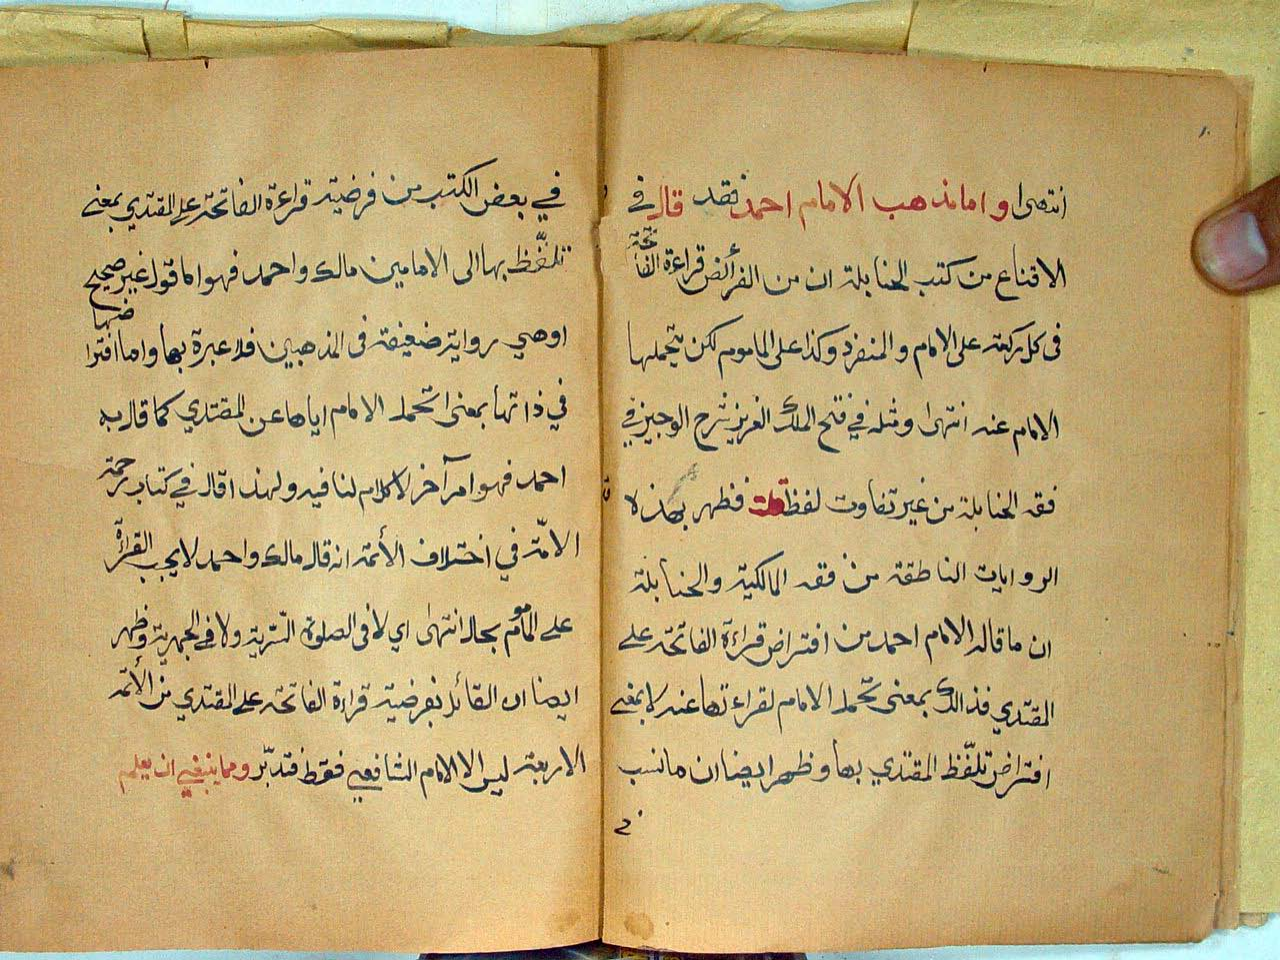 ١٠
انتهى واما مذهب الامام احمد فقد قال في
الاقناع من كتب الحنابلة ان من الفرائض قراءة الفاتحة
في كل ركعة على الامام والمنفرد وكذا على الماموم لكن يتحملها
الامام عنه انتهى ومثله في فتح الملك العزيز شرح الوجيز في
فقه الحنابلة من غير تفاوت لفظ قلت فظهر بهذه
الروايات الناطقة من فقه المالكية والحنابلة
ان ما قاله الامام احمد من افتراض قراءة الفاتحة على
المقتدي فذالك بمعنى تحمل الامام لقراءتها عنه لا بمعنى
افتراض تلفّظ المقتدي بها وظهر ايضا ان ما نسب
في بعض الكتب من فرضية قراءة الفاتحة على المقتدي بمعنى
تلفّظ بها الى الامامين مالك واحمد فهو اما قول غير صحيح
او هي رواية ضعيفة في المذهبين فلا عبرة بها واما افتراضها
في ذاتها بمعنى تحمل الامام اياها عن المقتدي كما قال به
احمد فهو امر آخر لا كلام لنا فيه ولهذا قال في كتاب رحمة
الامّة في اختلاف الأئمة انه قال مالك واحمد لا يجب القراءة
على المأموم بحال انتهى اي لا في الصلوة السّرية ولا في الجهرية وظهر
ايضا ان القائل بفرضية قراءة الفاتحة على المقتدي من الأئمة
الاربعة ليس الا الامام الشافعي فقط فتدبّر ومما ينبغي ان يعلم